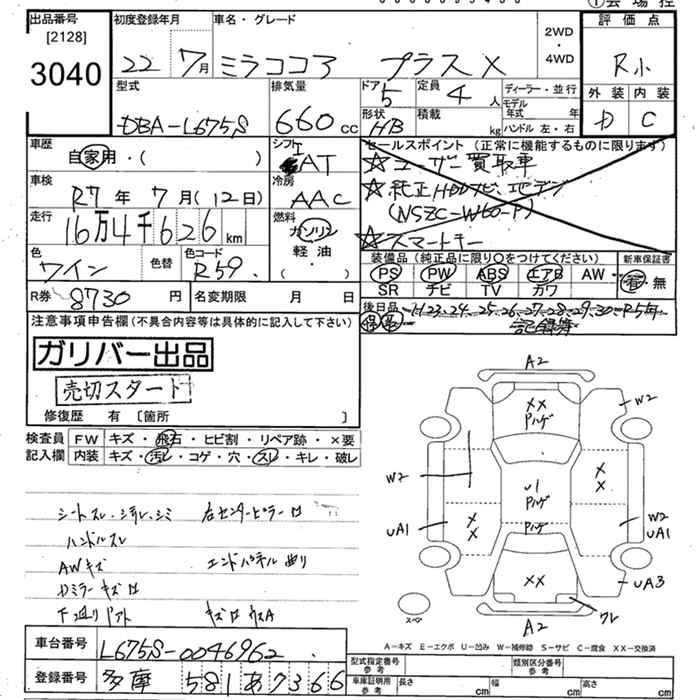 出品番号
[2128]
3040
初度登録年月
22年 7月
車名・グレード
ミラココア プラスX
2WD
・
4WD
評価点
R小
外装 内装
D C
型式
DBA-L675S
排気量
660 cc
ドア 5
定員 4 人
形状 HB
積載 kg
ディーラー・並行
モデル年式 年式
ハンドル 左・右
車歴
自家用・( )
車検
R7年 7月(12日)
走行
16万4千626km
色
ワイン
色替
色コード
R59
シフト
AT
冷房
AAC
燃料
ガソリン
軽油
( )
セールスポイント (正常に機能するものに限ります)
☆ユーザー買取車
☆純正HDDナビ、地デジ
(NSZC-W60-P)
☆スマートキー
装備品 (純正品に限り○をつけてください)
PS PW ABS エアB AW
SR ナビ TV カワ
新車保証書
有・無
R券 8730円
名変期限 月 日
後日品 H23.24.25.26.27.28.29.30-R5年
保 取 記録簿
注意事項申告欄 (不具合内容等は具体的に記入して下さい)
ガリバー出品
売切スタート
修復歴 有 〔箇所 〕
検査員記入欄
FW キズ・飛石・ヒビ割・リペア跡・×要
内装 キズ・汚レ・コゲ・穴・スレ・キレ・破レ
シートスレ・シガレ・シミ 右センターピラーロ
ハンドルスレ
AWキズ エンドパネル曲り
Dミラーキズロ
下廻りPアト
A2
XX
Pハゲ
W2
W2
U1
Pハゲ
Pハゲ
XX
XX
UA1
W2
UA1
XX
UA3
ワレ
A2
スペア
A-キズ E-エクボ U-凹み W-補修跡 S-サビ C-腐食 XX-交換済
車台番号 L675S-0046962
登録番号 多摩 581あ7366
型式指定番号 参考
類別区分番号 参考
車庫証明用 参考
長さ cm
幅 cm
高さ cm